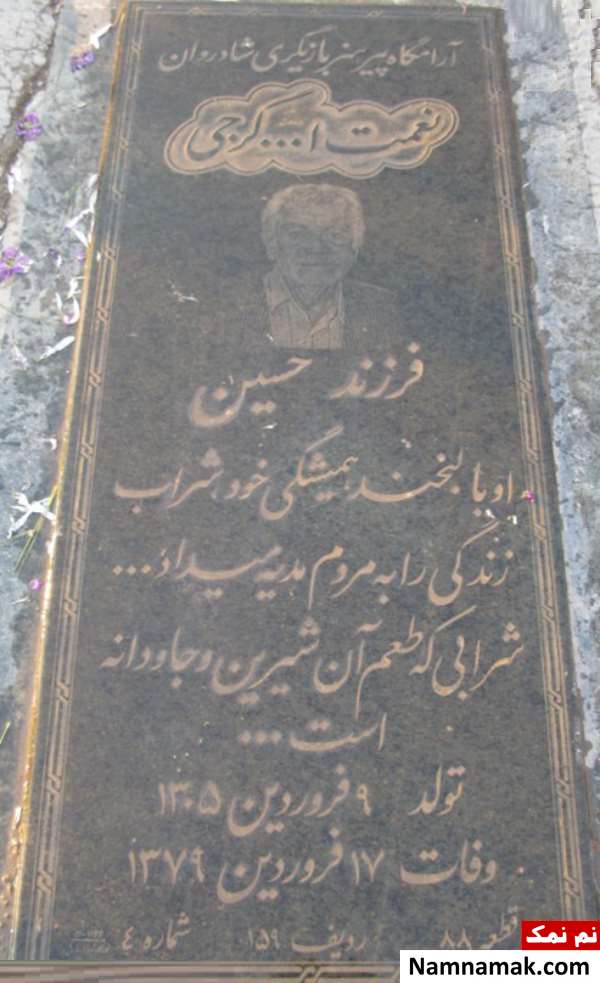 آرامگاه پیر هنر بازیگری شادروان
نعمت ا... گرجی
فرزند حسین
او با لبخند همیشگی خود، شراب
زندگی را به مردم هدیه میداد...
شرابی که طعم آن شیرین و جاودانه
است...
تولد ۹ فروردین ۱۳۰۵
وفات ۱۷ فروردین ۱۳۷۹
قطعه ۸۸ ردیف ۱۵۹ شماره ۴
نم نمک
Namnamak.com